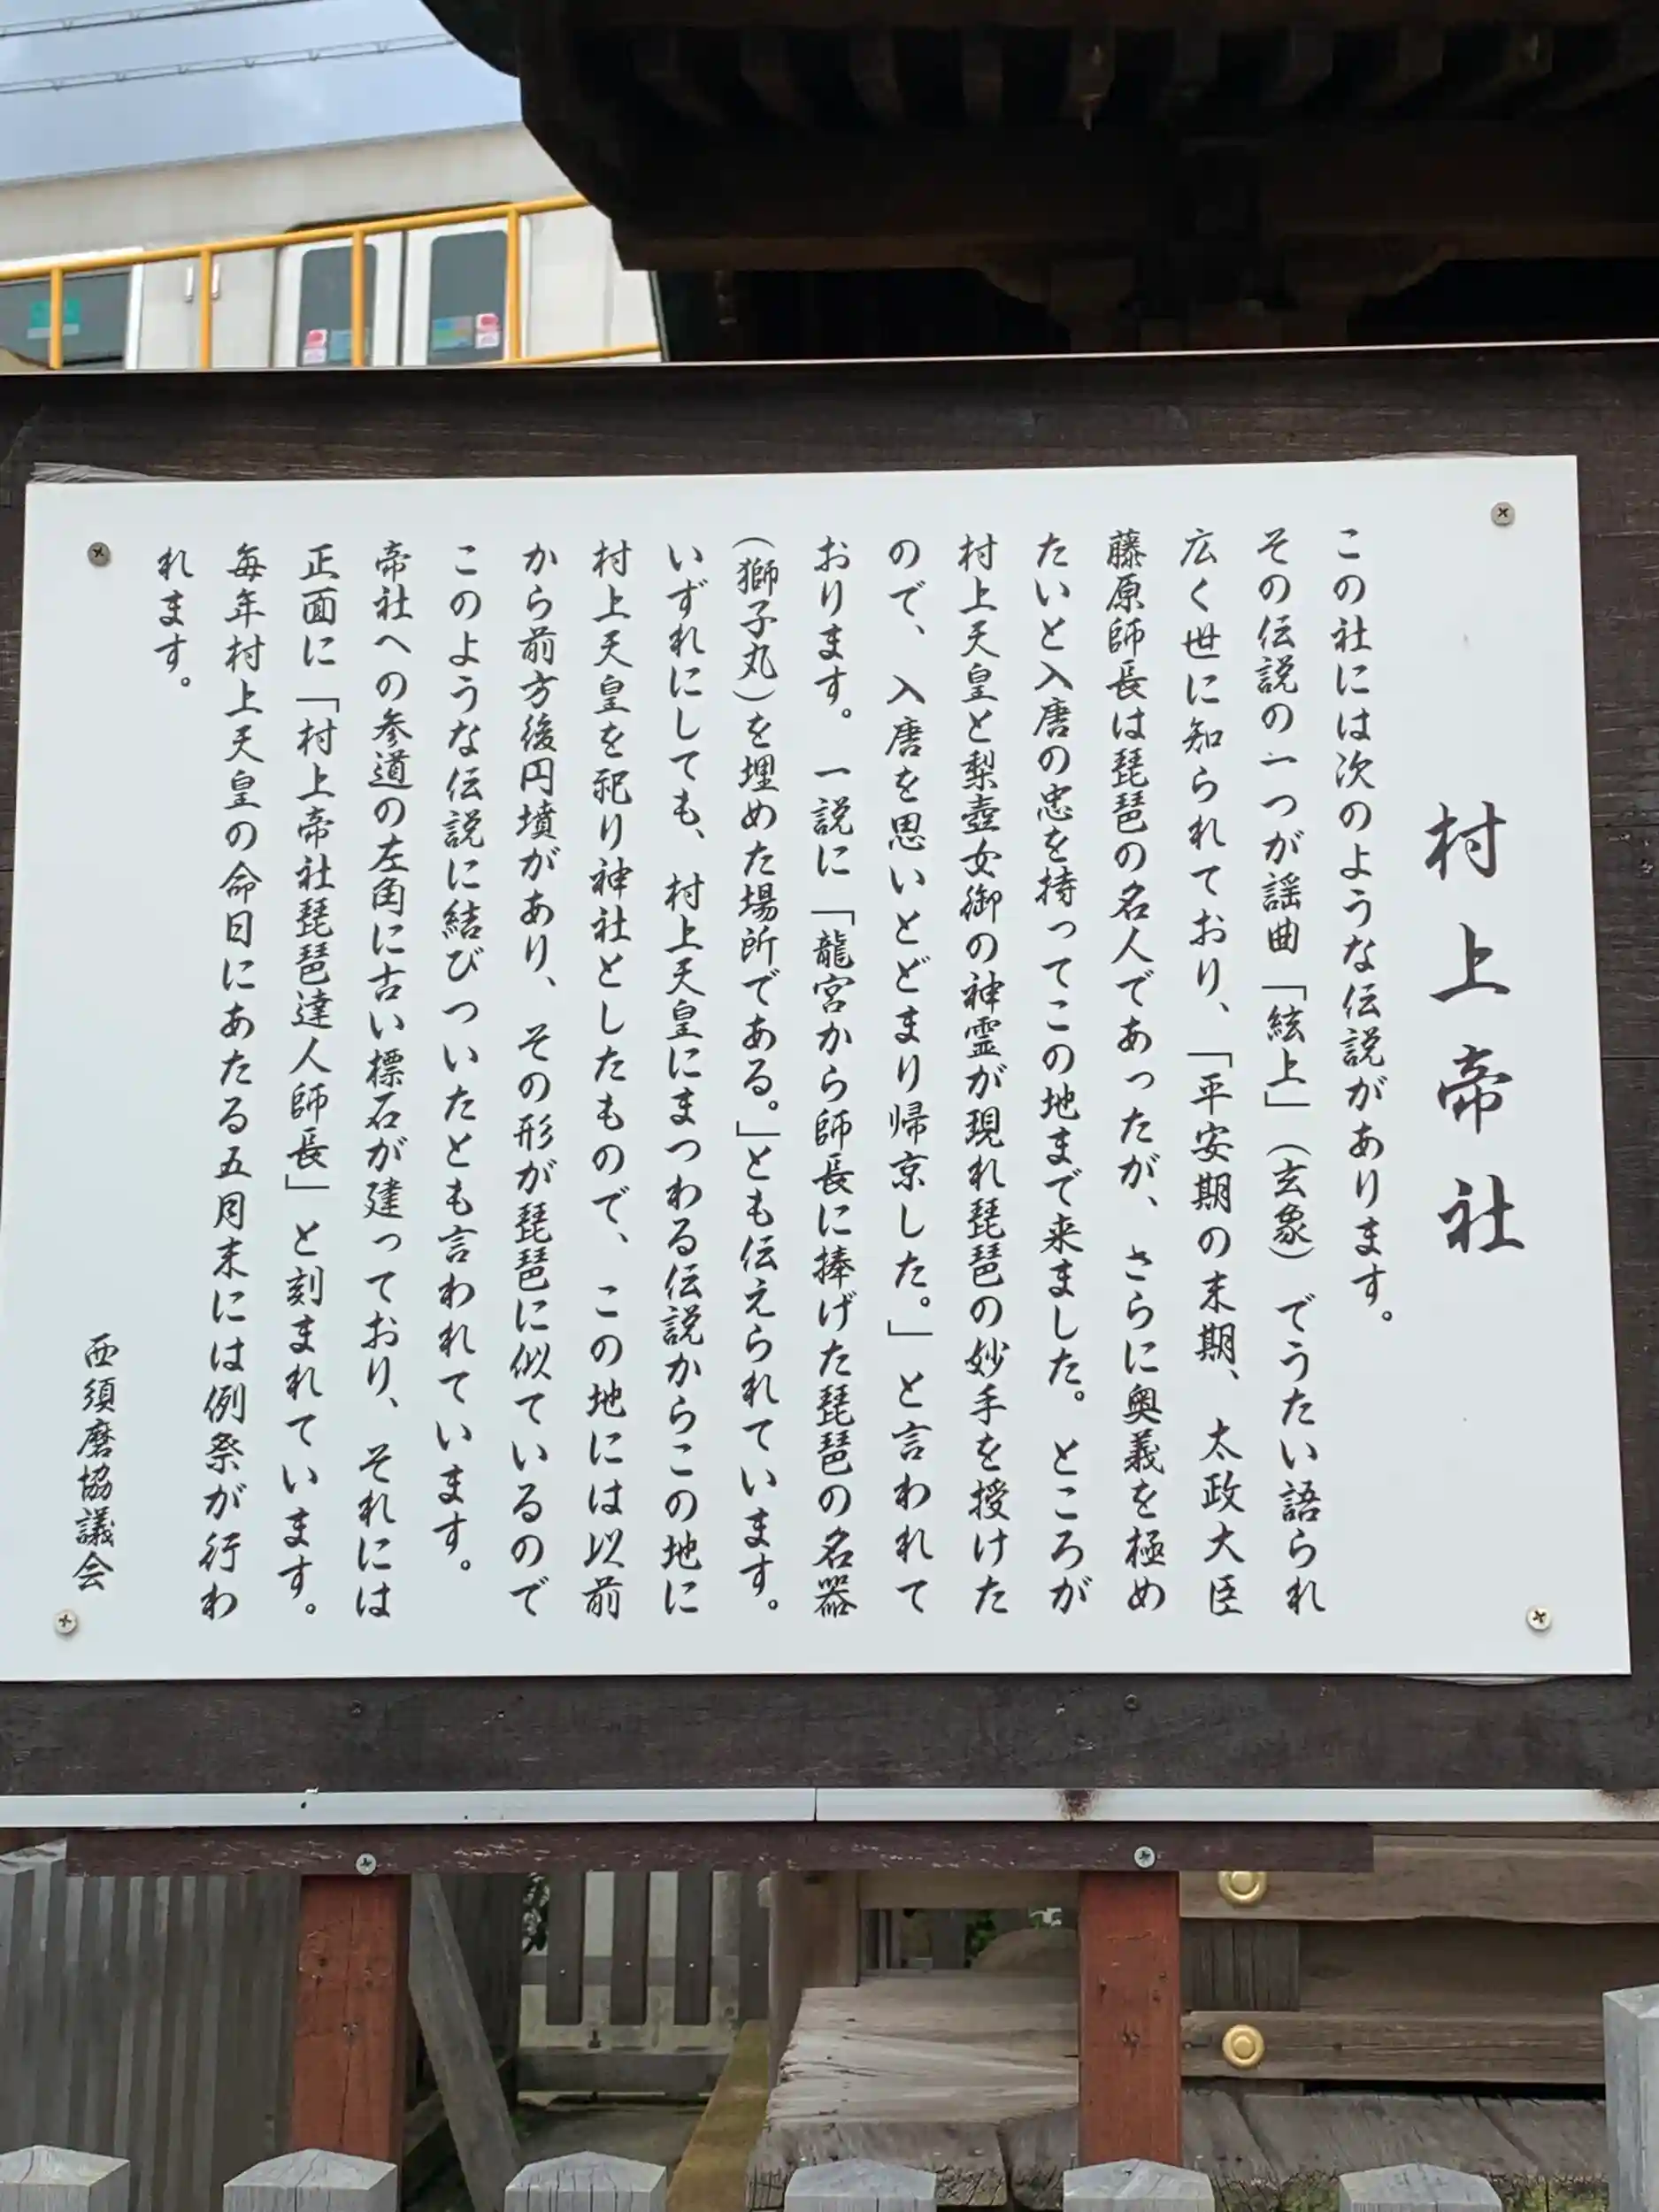 村上帝社
この社には次のような伝説があります。
その伝説の一つが謡曲「絃上」（玄象）でうたい語られ
広く世に知られており、「平安期の末期、太政大臣
藤原師長は琵琶の名人であったが、さらに奥義を極め
たいと入唐の忠を持ってこの地まで来ました。ところが
村上天皇と梨壺女御の神霊が現れ琵琶の妙手を授けた
ので、入唐を思いとどまり帰京した。」と言われて
おります。一説に「龍宮から師長に捧げた琵琶の名器
（獅子丸）を埋めた場所である。」とも伝えられています。
いずれにしても、村上天皇にまつわる伝説からこの地に
村上天皇を祀り神社としたもので、この地には以前
から前方後円墳があり、その形が琵琶に似ているので
このような伝説に結びついたとも言われています。
帝社への参道の左角に古い標石が建っており、それには
正面に「村上帝社琵琶達人師長」と刻まれています。
毎年村上天皇の命日にあたる五月末には例祭が行わ
れます。
西須磨協議会